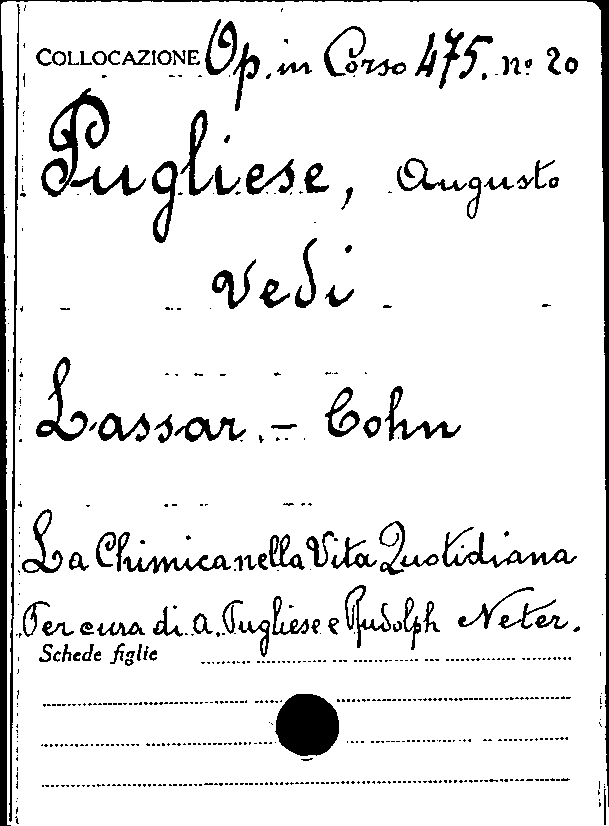 COLLOCAZIONE Op. in Corso 475. nº 20
Pugliese, Augusto
Vedi
Lassar. - Cohn
La Chimica nella Vita Quotidiana
Per cura di A. Pugliese e Rudolph Neter.
Schede figlie